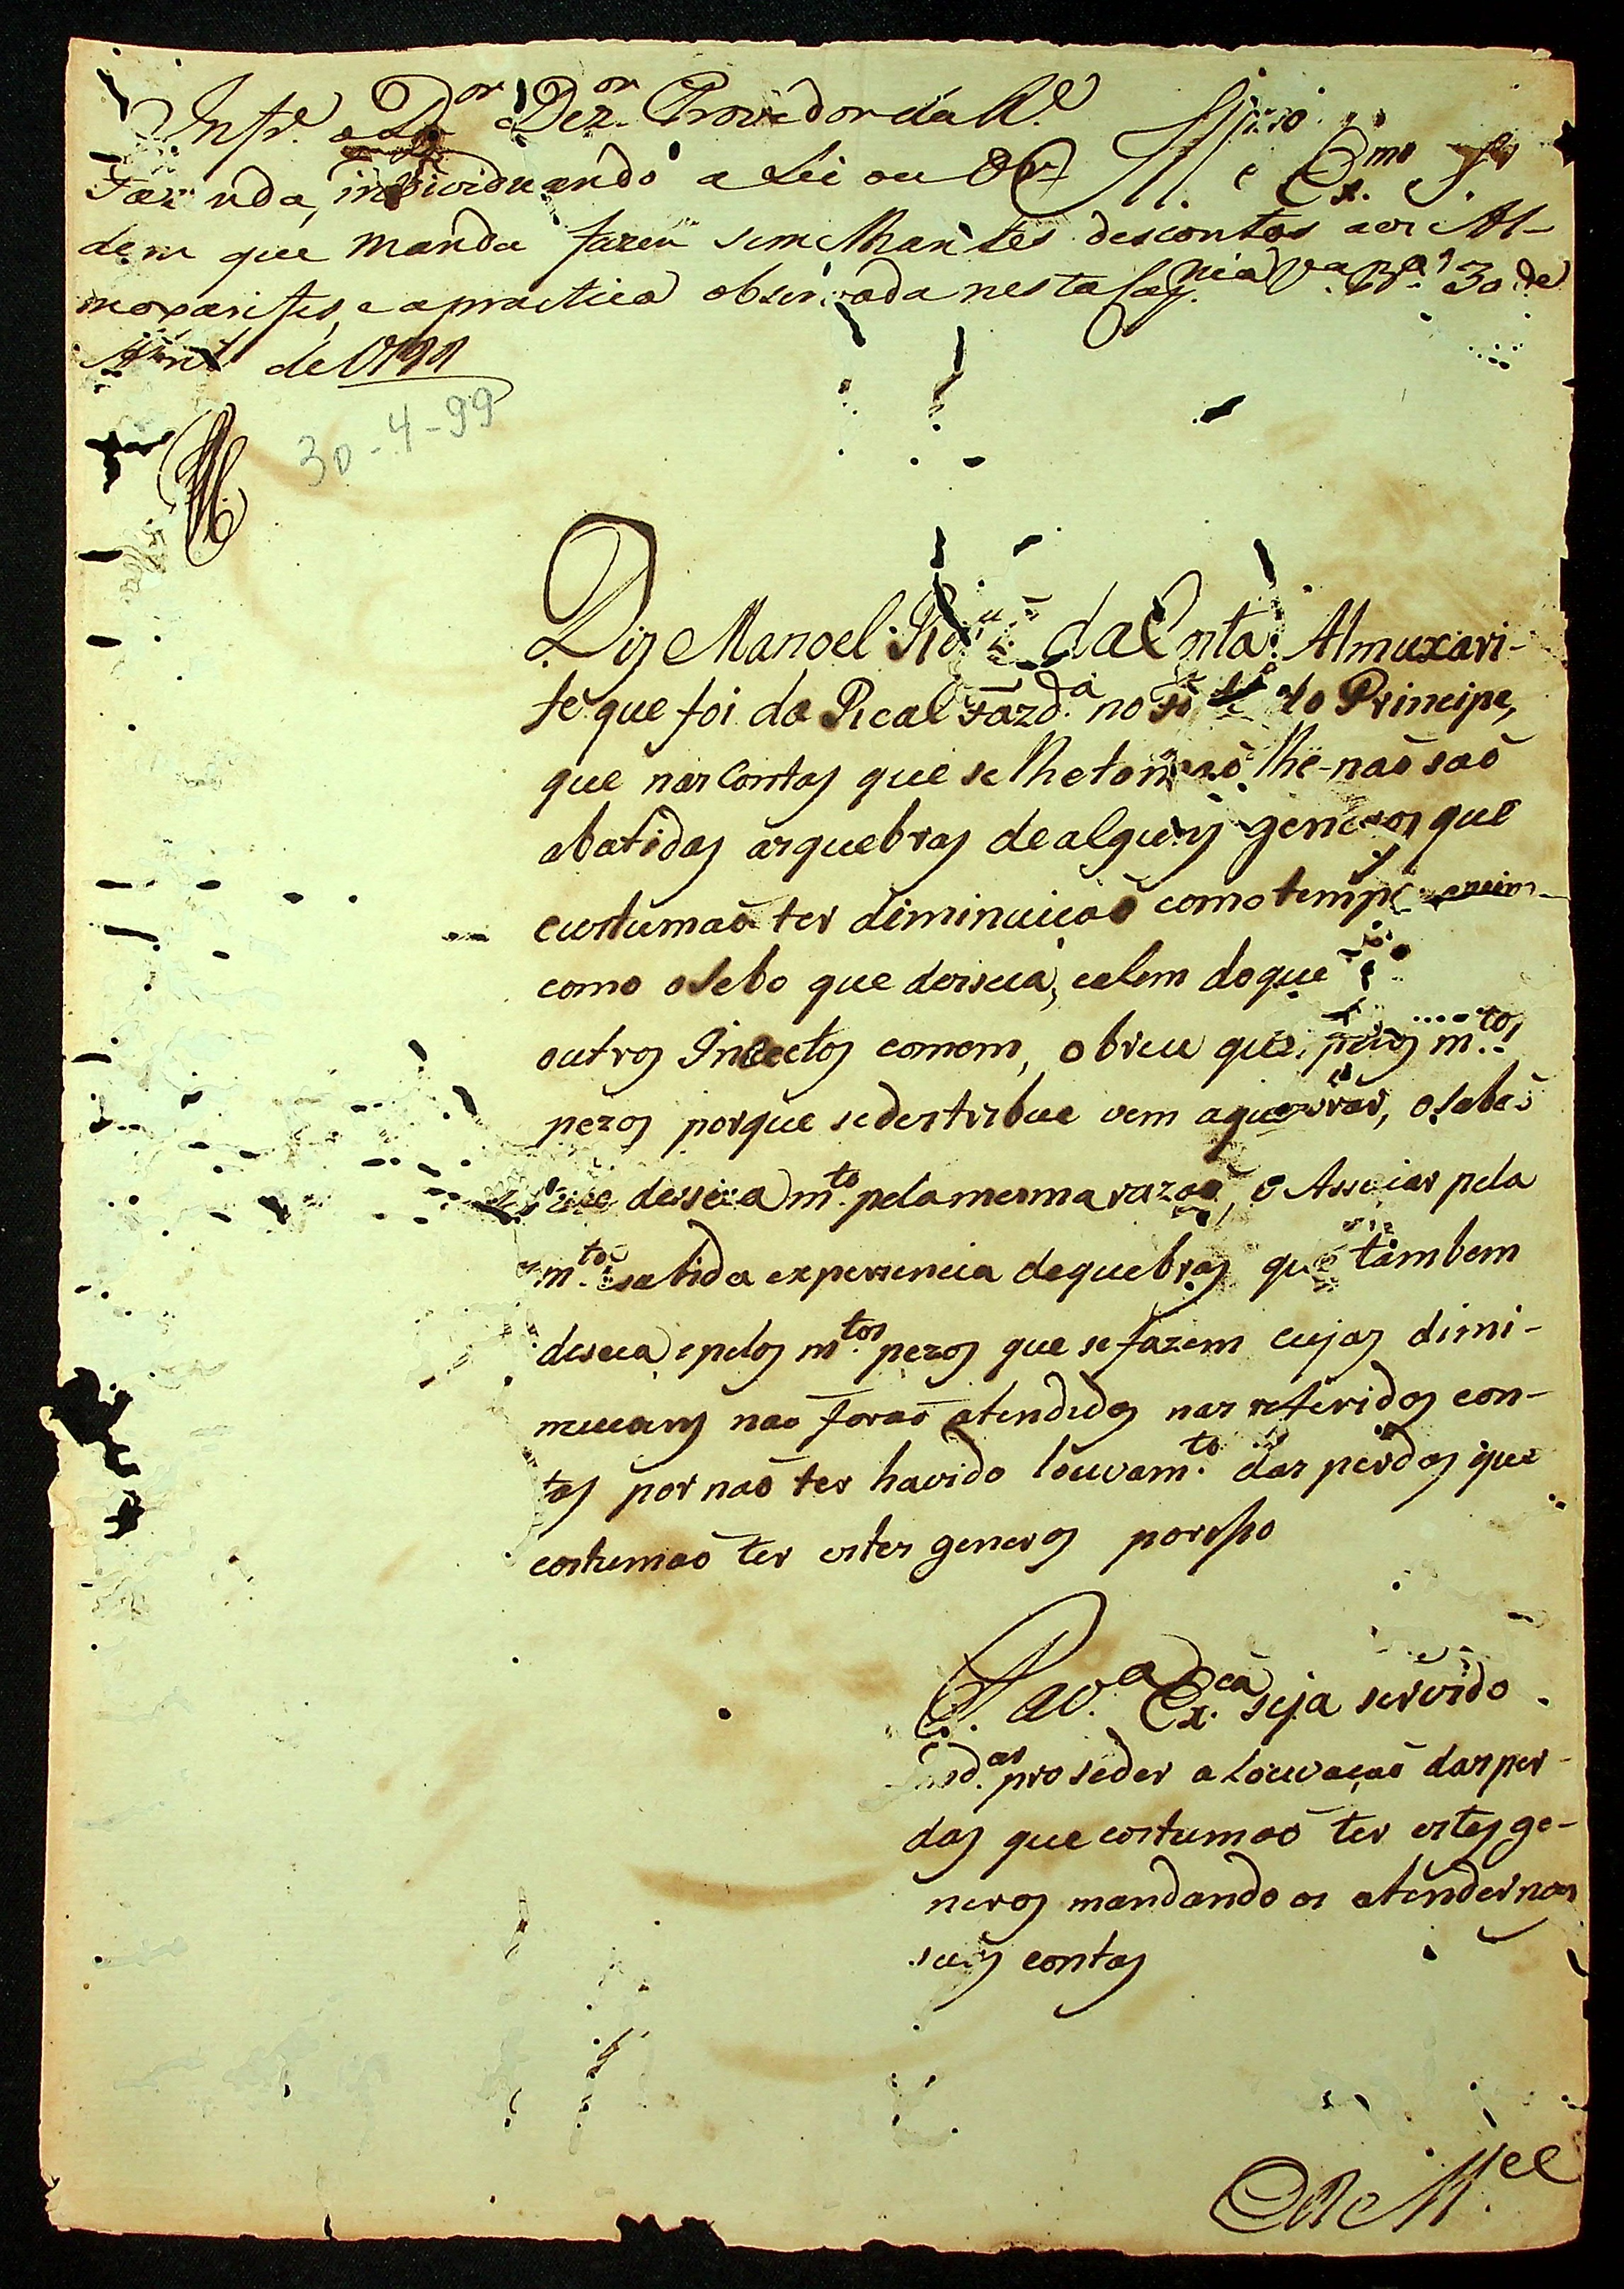 Infr.e o Dor Dezor Provedor da R.l
Fazenda, individuando a Lei ou Or-
dem que manda fazer semelhantes descontos aos Al-
moxarifes, e a practica observada nesta Capnia V.a B.a 30 de
Abril de 1799
30-4-99
Illmo e Exmo Sr
Diz Manoel da Costa Almuxari-
fe que foi da Real Fazd.a no do Principe,
que nas Contas que se lhe tomaraõ lhe naõ saõ
abatidas as quebras de alguns generos que
custumaõ ter diminuicaõ como
como o Sebo que desseca, e alem do que
outros Incectos comem, o breu que pelos m.tos
pezos porque se destribue vem a quebrar, o sabaõ
que desseca m.to pela mesma razaõ, o Assucar pela
m.to sabida experiencia de quebras que tambem
deseca, e pelos m.tos pezos que se fazem cujas dimi-
nucoins naõ foraõ atendidas nas referidas con-
tas por naõ ter havido louvam.to das perdas que
costumaõ ter estes generos por isso
P. a V.a Ex.ca seja servido
mand.ar proseder a Louvaçaõ das per-
das que costumaõ ter estes ge-
neros mandando as atender nas
suas contas
E R M.ce